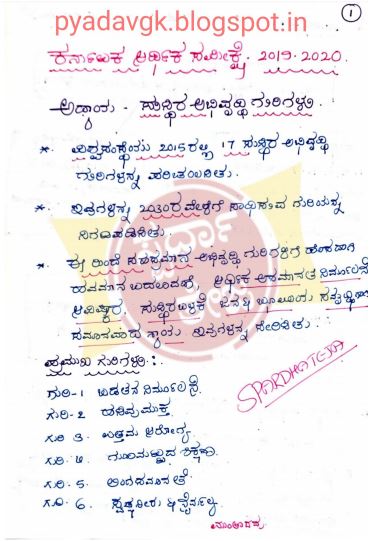 pyadavgk.blogspot.in
1
ಕರ್ನಾಟಕ ಆರ್ಥಿಕ ಸಮೀಕ್ಷೆ. 2019-2020
ಅಧ್ಯಾಯ - ಸುಸ್ಥಿರ ಅಭಿವೃದ್ಧಿ ಗುರಿಗಳು.
* ವಿಶ್ವಸಂಸ್ಥೆಯು 2015ರಲ್ಲಿ 17 ಸುಸ್ಥಿರ ಅಭಿವೃದ್ಧಿ
ಗುರಿಗಳನ್ನು ಪರಿಚಯಿಸಿತು.
* ಇವುಗಳನ್ನು 2030ರ ವೇಳೆಗೆ ಸಾಧಿಸುವ ಗುರಿಯನ್ನು
ನಿಗದಿಪಡಿಸಿತು.
* ಈ ಹಿಂದೆ ಸಹಸ್ರಮಾನ ಅಭಿವೃದ್ಧಿ ಗುರಿಗಳಿಗೆ ಹೆಚ್ಚುವರಿಯಾಗಿ
ಹವಾಮಾನ ಬದಲಾವಣೆ, ಆರ್ಥಿಕ ಅಸಮಾನತೆ ನಿರ್ಮೂಲನೆ
ಆವಿಷ್ಕಾರ, ಸುಸ್ಥಿರ ಬಳಕೆ
ನ್ಯಾಯ ಇವುಗಳನ್ನು ಸೇರಿಸಿತು.
ಪ್ರಮುಖ ಗುರಿಗಳು:
ಗುರಿ-1 ಬಡತನ ನಿರ್ಮೂಲನೆ.
ಗುರಿ-2 ಹಸಿವು ಮುಕ್ತ
ಗುರಿ 3. ಉತ್ತಮ ಆರೋಗ್ಯ.
ಗುರಿ. 4. ಗುಣಮಟ್ಟದ ಶಿಕ್ಷಣ.
ಗುರಿ. 5. ಲಿಂಗಸಮಾನತೆ
ಗುರಿ. 6. ಸ್ವಚ್ಛನೀರು & ನೈರ್ಮಲ್ಯ.
SPARDHATEJA